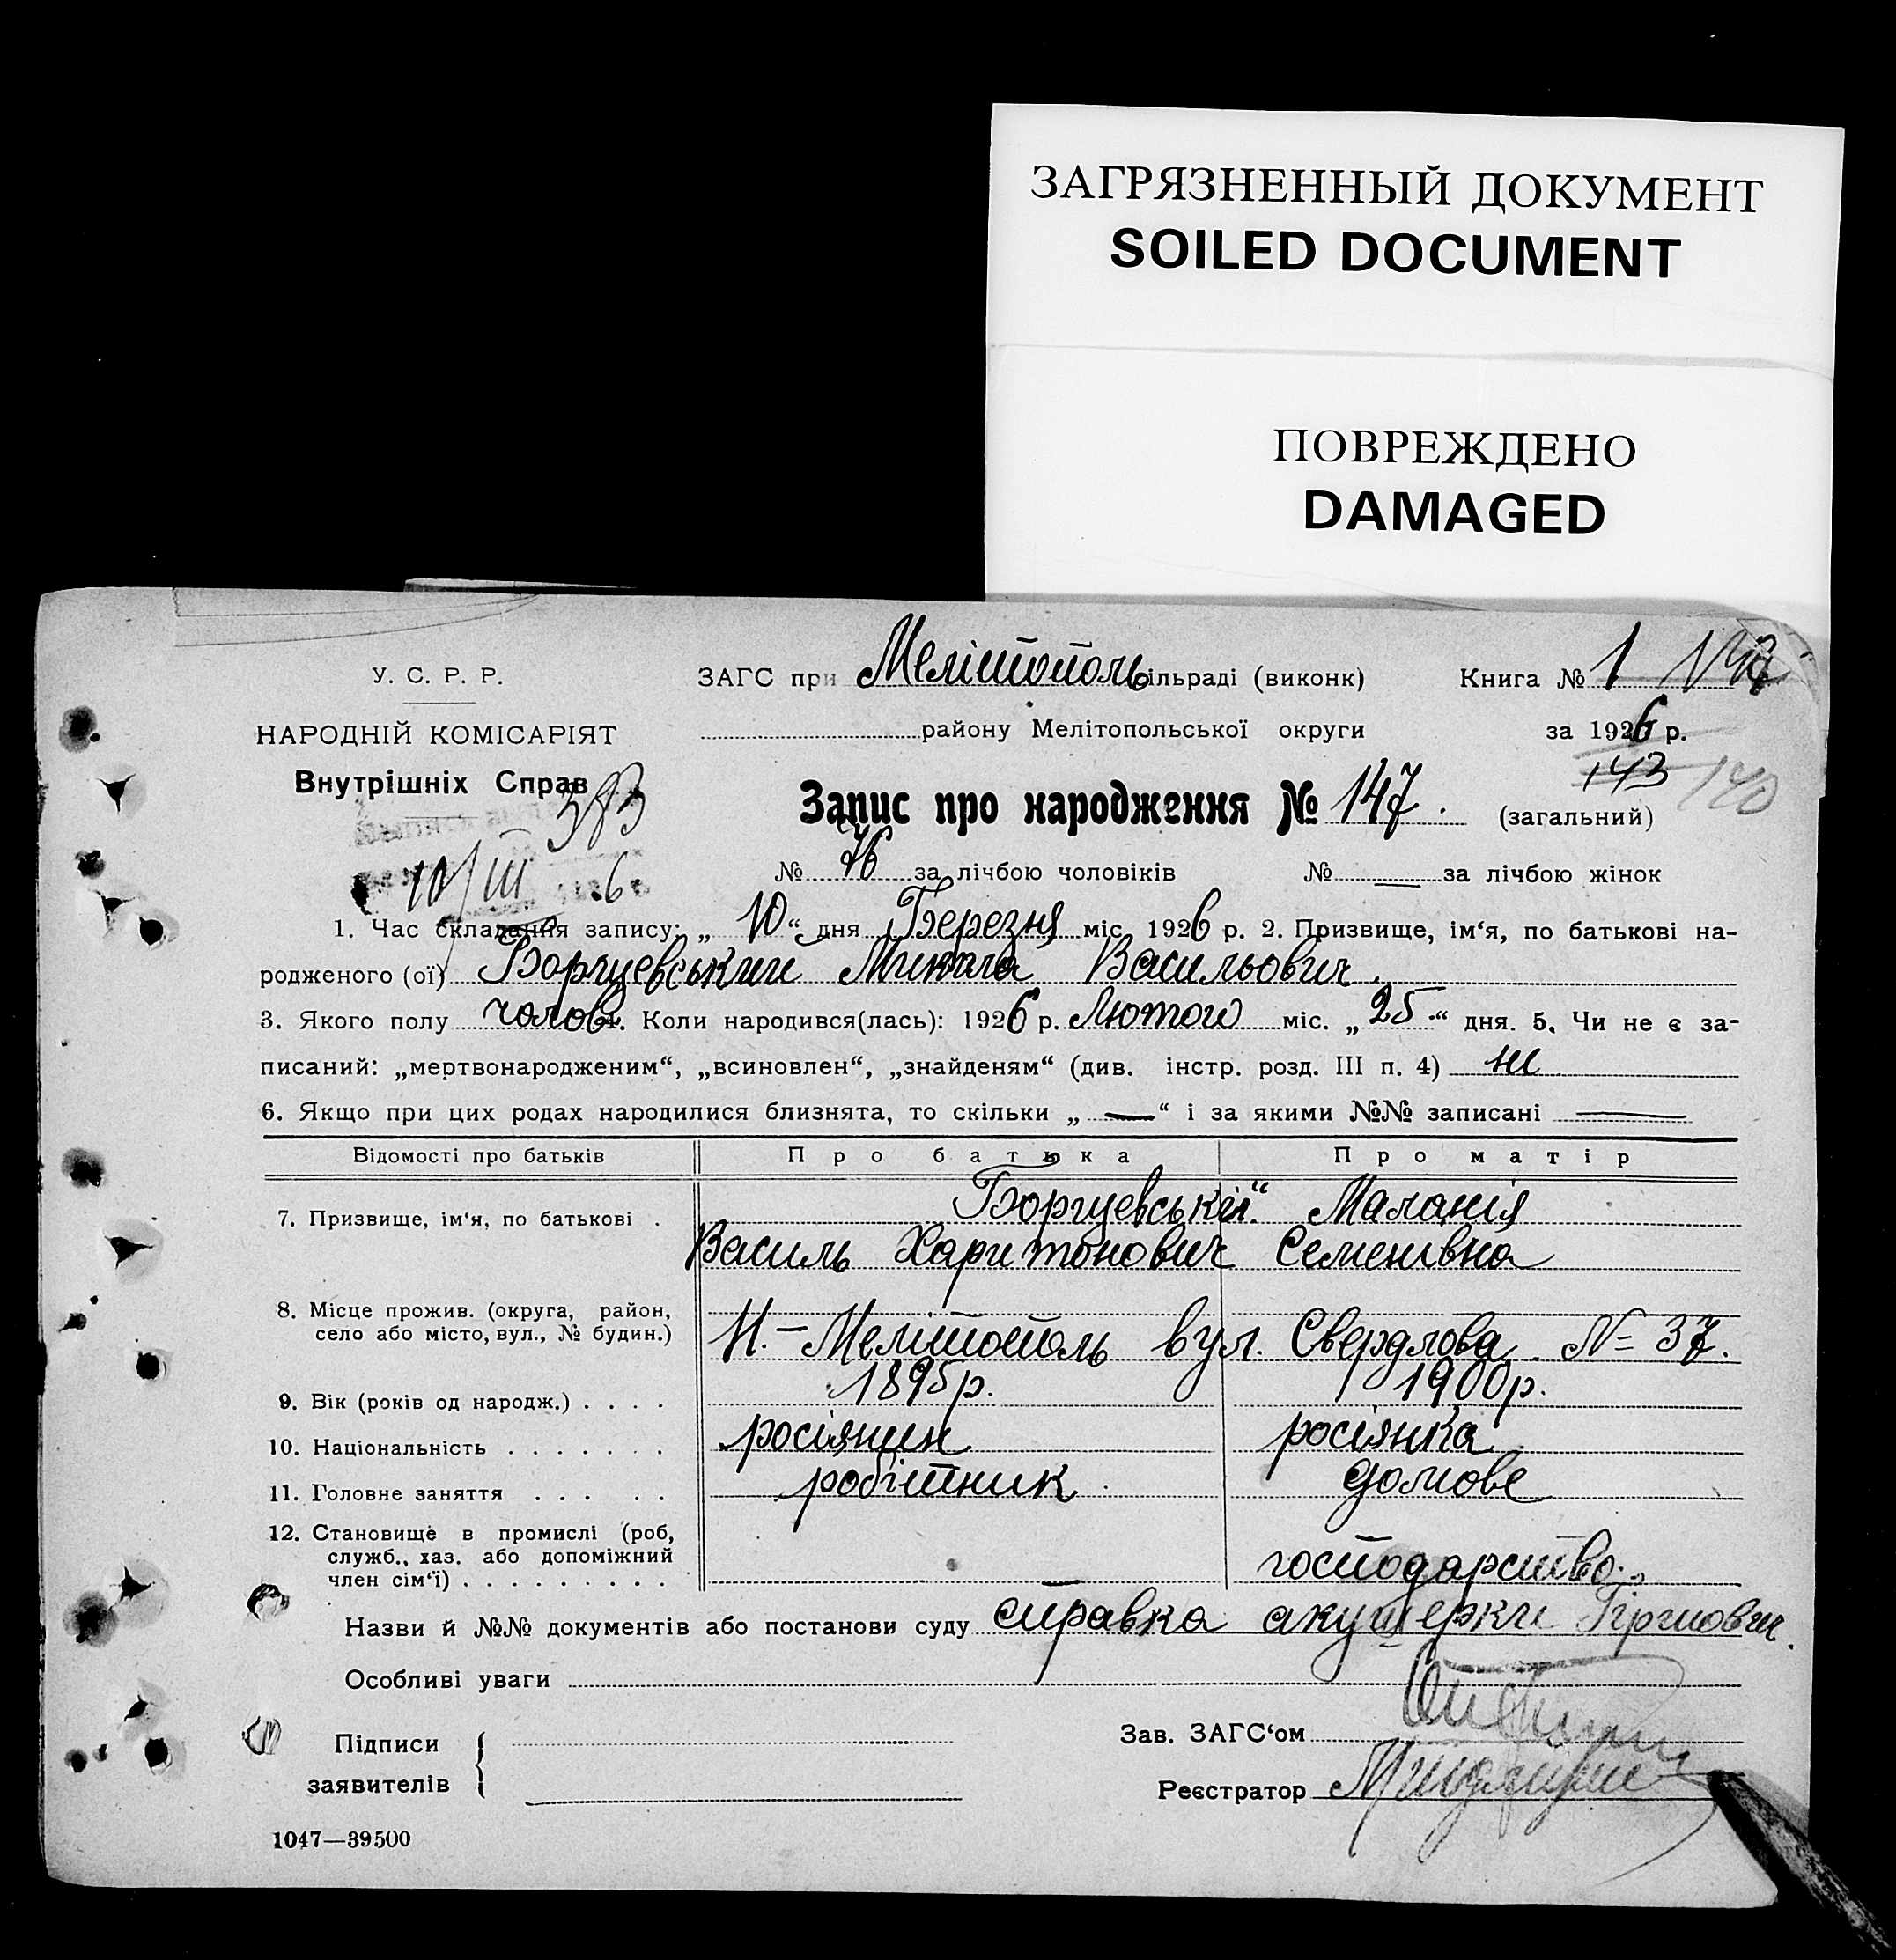 ЗАГРЯЗНЕННЫЙ ДОКУМЕНТ
SOILED DOCUMENT
ПОВРЕЖДЕНО
DAMAGED
У. С. Р. Р.
НАРОДНІЙ КОМІСАРІЯТ
Внутрішніх Справ
10/III 6
ЗАГС при Мелітополь ільраді (виконк)
району Мелітопольської округи
Книга № 1
за 1926 р.
143 140
Запис про народження № 147. (загальний)
№ 76 за лічбою чоловіків № — за лічбою жінок
1. Час складання запису: „ 10 “ дня Березня міс. 1926 р. 2. Призвище, ім‘я, по батькові на-
родженого (ої) Боргуевський Микола Васильович.
3. Якого полу чолов. 4. Коли народився(лась): 1926 р. Лютого міс. „ 25 “ дня. 5. Чи не є за-
писаний: „мертвонародженим“, „всиновлен“, „знайденям“ (див. інстр. розд. III п. 4) ні
6. Якщо при цих родах народилися близнята, то скільки „ — “ і за якими №№ записані —
Відомості про батьків Про батька Про матір
7. Призвище, ім‘я, по батькові . Боргуевські Маланія
Василь Харитонович Семенівна
8. Місце прожив. (округа, район,
село або місто, вул., № будин.) Н.-Мелітополь вул. Свердлова № 37.
9. Вік (років од народж.) . . . . 1895р. 1900р.
10. Національність . . . . . . . росіянин росіянка
11. Головне заняття . . . . . робітник домове
12. Становище в промислі (роб,
служб., хаз. або допоміжний
член сім‘ї) . . . . . . . . . господарство.
Назви й №№ документів або постанови суду справка акушерки
Особливі уваги
Підписи
заявителів
Зав. ЗАГС‘ом
Реєстратор
1047—39500